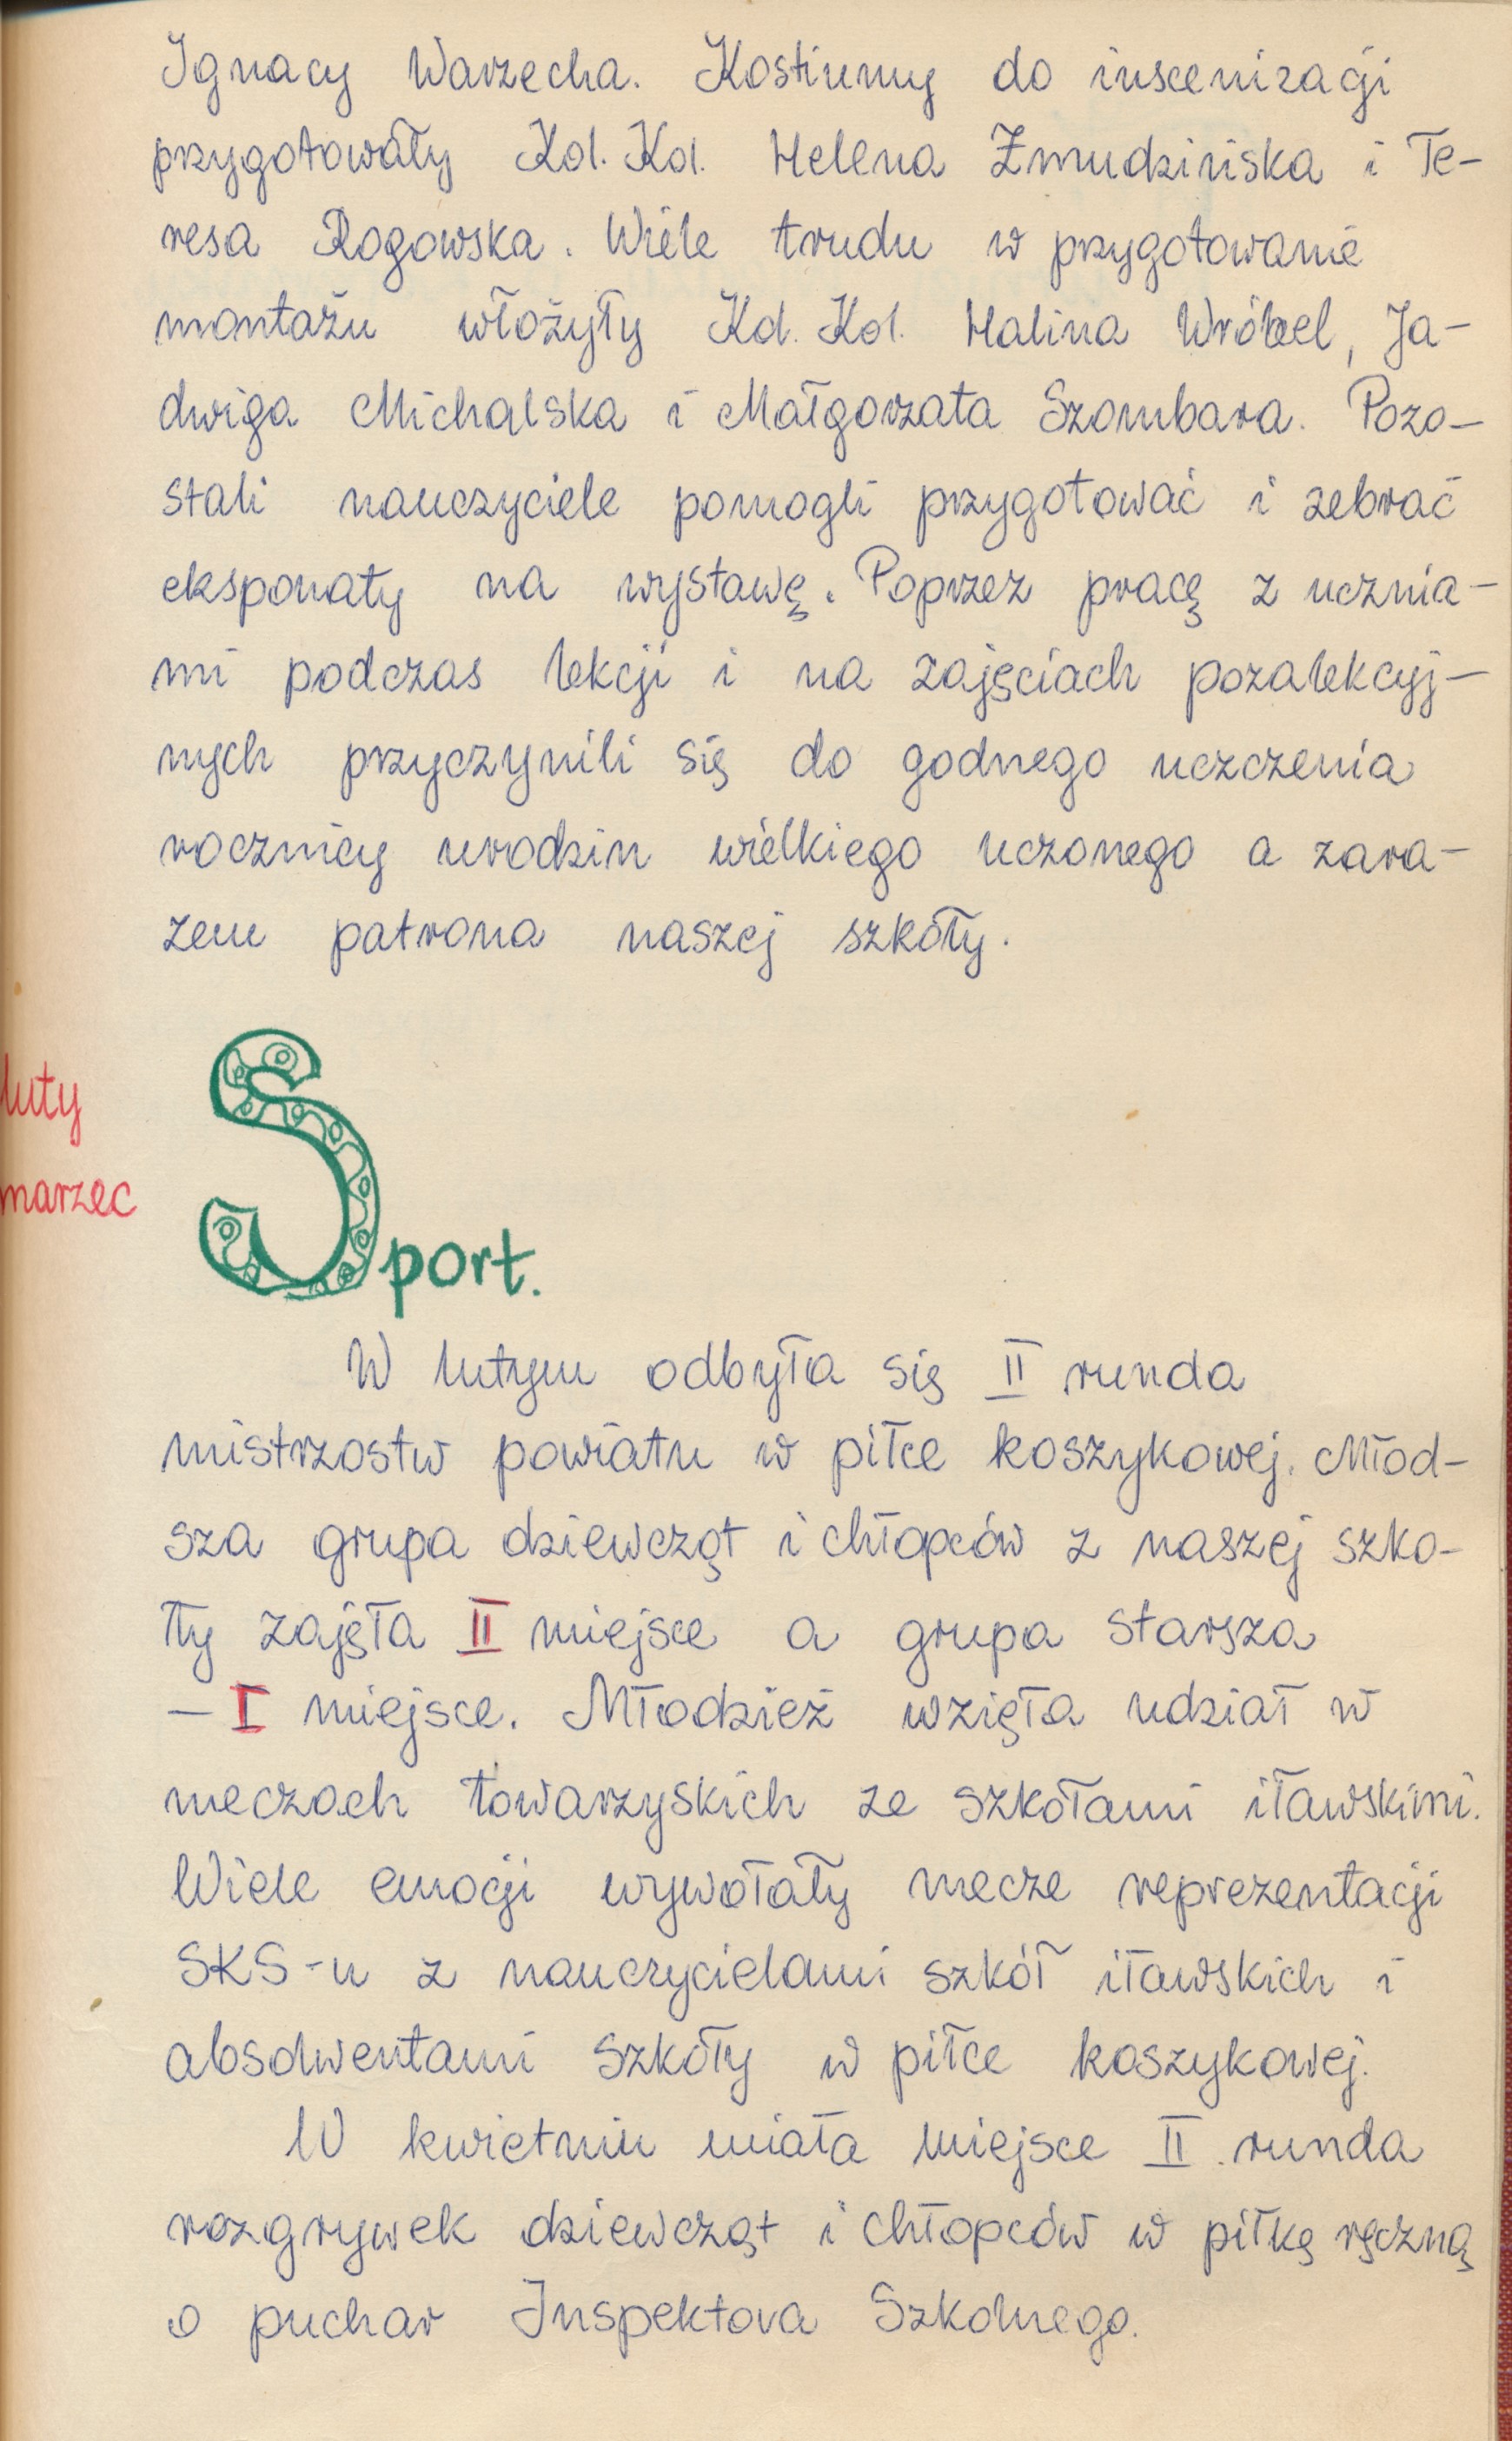 Ignacy Warzecha. Kostiumy do inscenizacji
przygotowały Kol. Kol. Helena Żmudzińska i Te-
resa Rogowska. Wiele trudu w przygotowanie
montażu włożyły Kol. Kol. Halina Wróbel, Ja-
dwiga Michalska i Małgorzata Szombara. Pozo-
stali nauczyciele pomogli przygotować i zebrać
eksponaty na wystawę. Poprzez pracę z ucznia-
mi podczas lekcji i na zajęciach pozalekcyj-
nych przyczynili się do godnego uczczenia
rocznicy urodzin wielkiego uczonego a zara-
zem patrona naszej szkoły.
luty
marzec
Sport.
W lutym odbyła się II runda
mistrzostw powiatu w piłce koszykowej. Młod-
sza grupa dziewcząt i chłopców z naszej szko-
ły zajęła II miejsce a grupa starsza
- I miejsce. Młodzież wzięła udział w
meczach towarzyskich ze szkołami iławskimi.
Wiele emocji wywołały mecze reprezentacji
SKS-u z nauczycielami szkół iławskich i
absolwentami szkoły w piłce koszykowej.
W kwietniu miała miejsce II runda
rozgrywek dziewcząt i chłopców w piłkę ręczną
o puchar Inspektora Szkolnego.